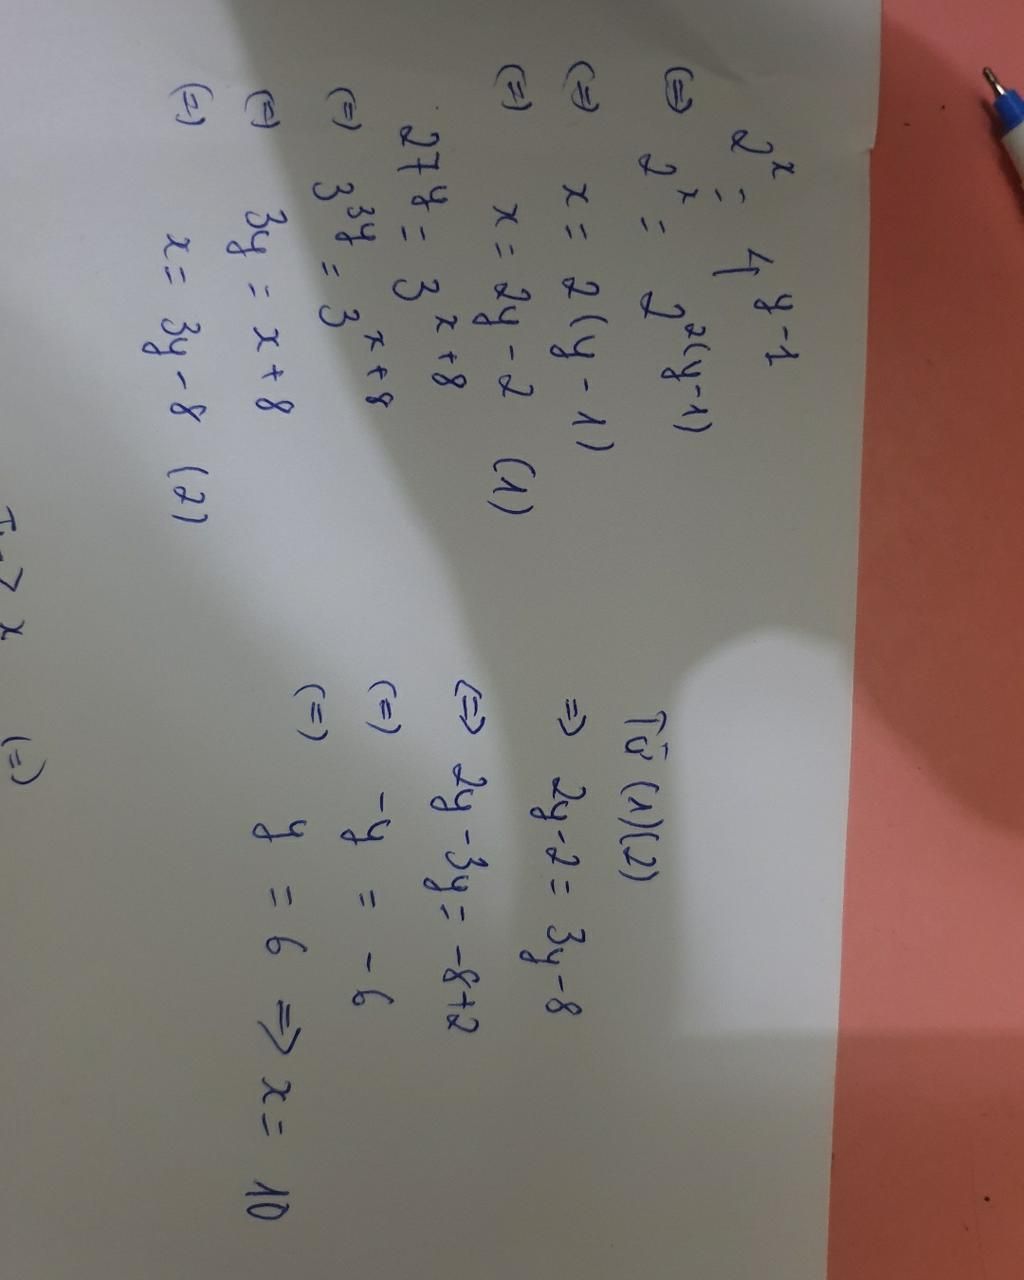 2^x = 4^{y-1}
(=) 2^x = 2^{2(y-1)}
(=) x = 2(y-1)
(=) x = 2y-2 (1)
27^y = 3^{x+8}
(=) 3^{3y} = 3^{x+8}
(=) 3y = x+8
(=) x = 3y-8 (2)
Từ (1)(2)
=) 2y-2 = 3y-8
(=) 2y-3y = -8+2
(=) -y = -6
(=) y = 6 => x = 10
x (=)